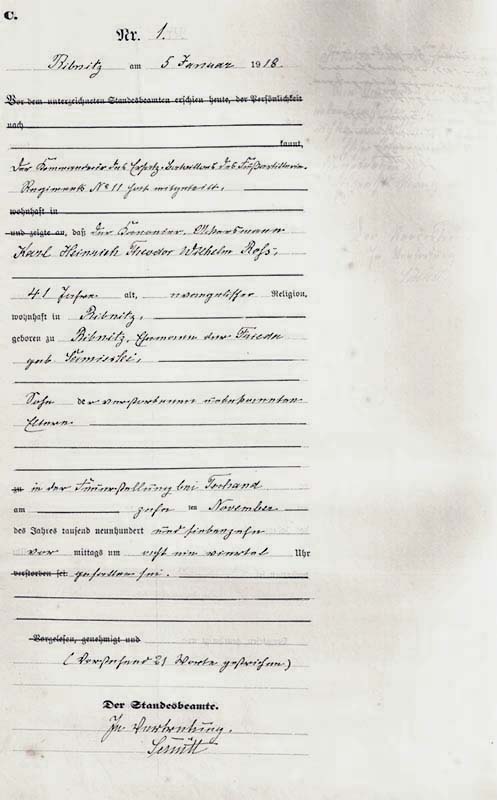 C.
Nr. 1.
Ribnitz am 5 Januar 1918.
Vor dem unterzeichneten Standesbeamten erschien heute, der Persönlichkeit
nach
kannt,
Der Kommandeur des Ersatz-Bataillons des Fußartillerie-
Regiments No 11 hat mitgeteilt,
wohnhaft in
und zeigte an, daß der Kanonier, Ackersmann
Karl Heinrich Theodor Wilhelm Roß,
41 Jahre alt, evangelischer Religion,
wohnhaft in Ribnitz,
geboren zu Ribnitz, Ehemann der Frieda
geb.
Sohn der verstorbenen unbekannten
Eltern
zu in der Feuerstellung bei
am zehn ten November
des Jahres tausend neunhundert und siebenzehn
vor mittags um acht ein viertel Uhr
verstorben sei. gefallen sei.
Vorgelesen, genehmigt und
(Vorstehend 21 Worte gestrichen)
Der Standesbeamte.
In Vertretung.